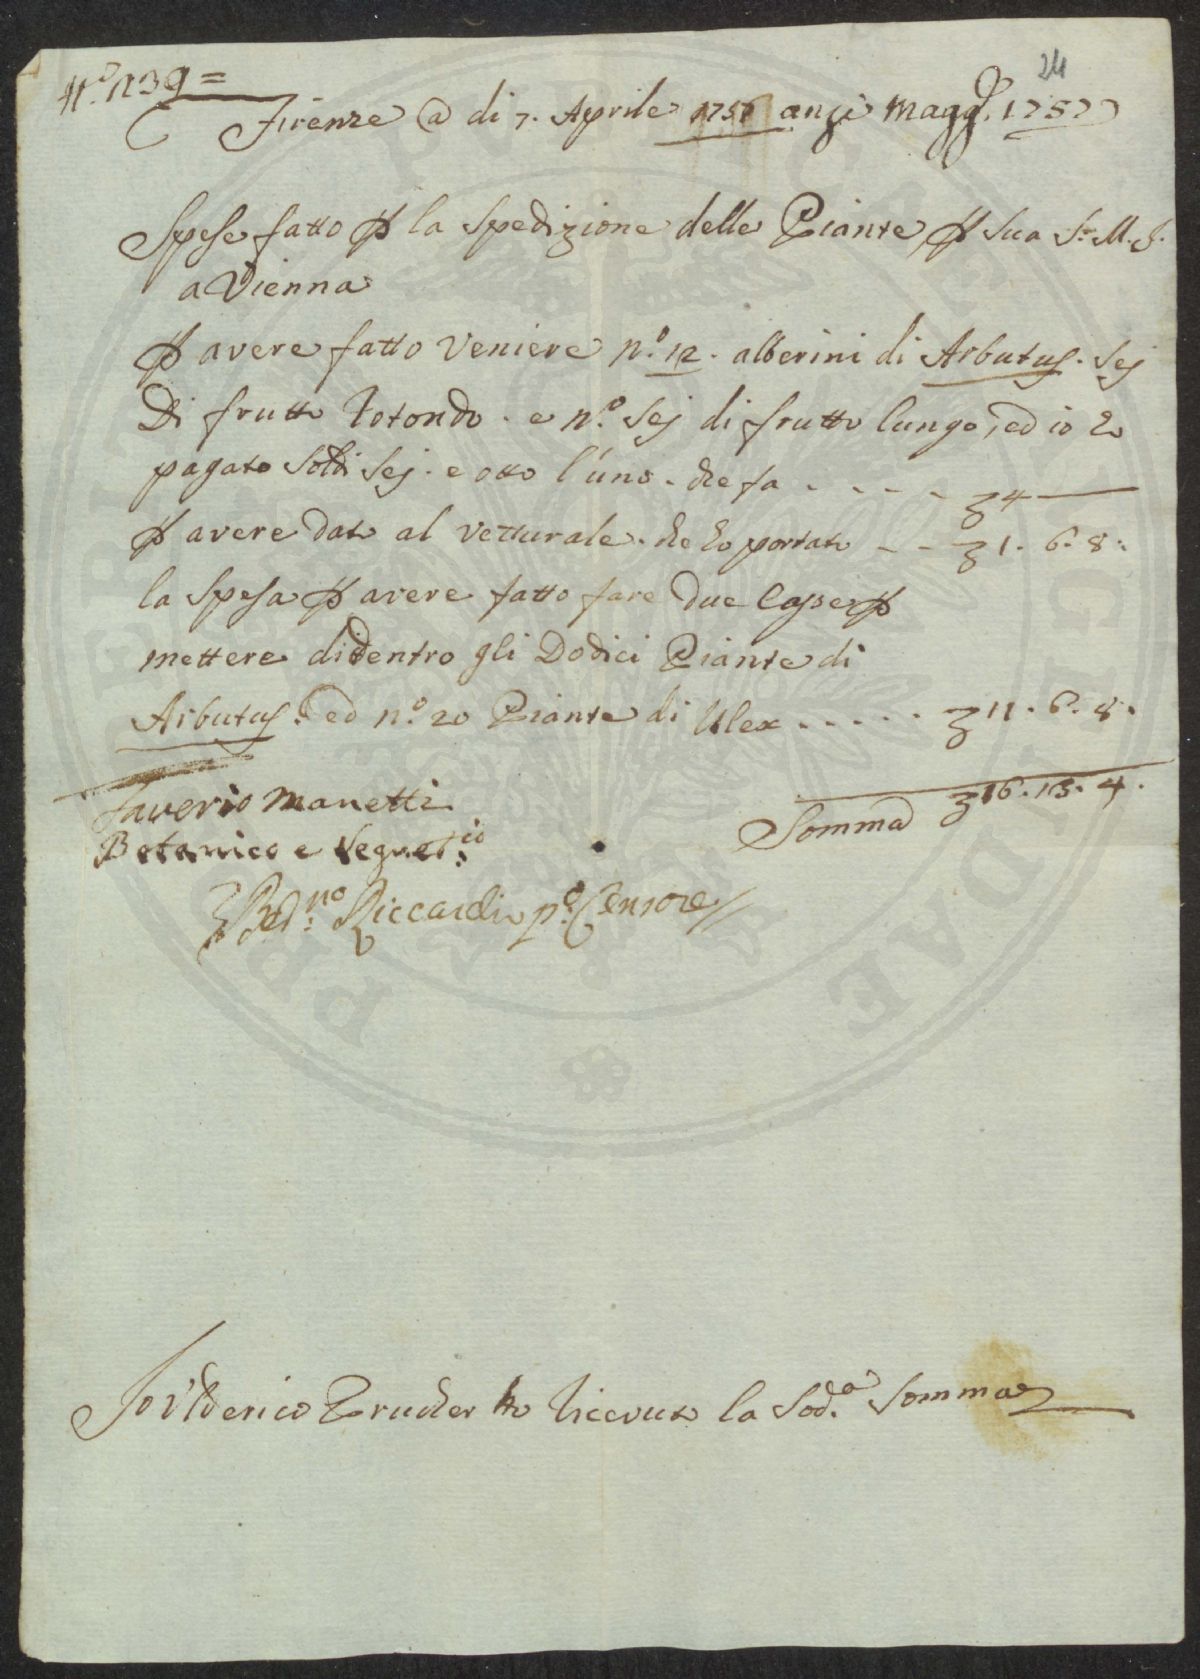 N.° 139 =
24
Firenze @ di 7. Aprile 1756 anzi Magg.° 1757
Spese fatto p la spedizione delle Piante p sua S. M. J.
a Vienna
p avere fatto Veniere n.° 12. alberini di Arbutus. sej
Di frutto Rotondo. e n.° sej di frutto lungo, ed io ho
pagato soldi sej. e otto l'uno. che fa - - - - 4 —
p avere dato al vetturale. che ho portato - - 1. 6. 8:
la spesa p avere fatto fare due Casse p
mettere didentro gli Dodici Piante di
Arbutus. ed n.° 20 Piante di Ulex - - - - - 11. 6. 8.
Somma 16. 13. 4.
Saverio Manetti
Botanico e Segret.io
Bed.no Riccardi p.o Censore
Io Vlderico Prucker ho Riceuuto la Sod.a Somma